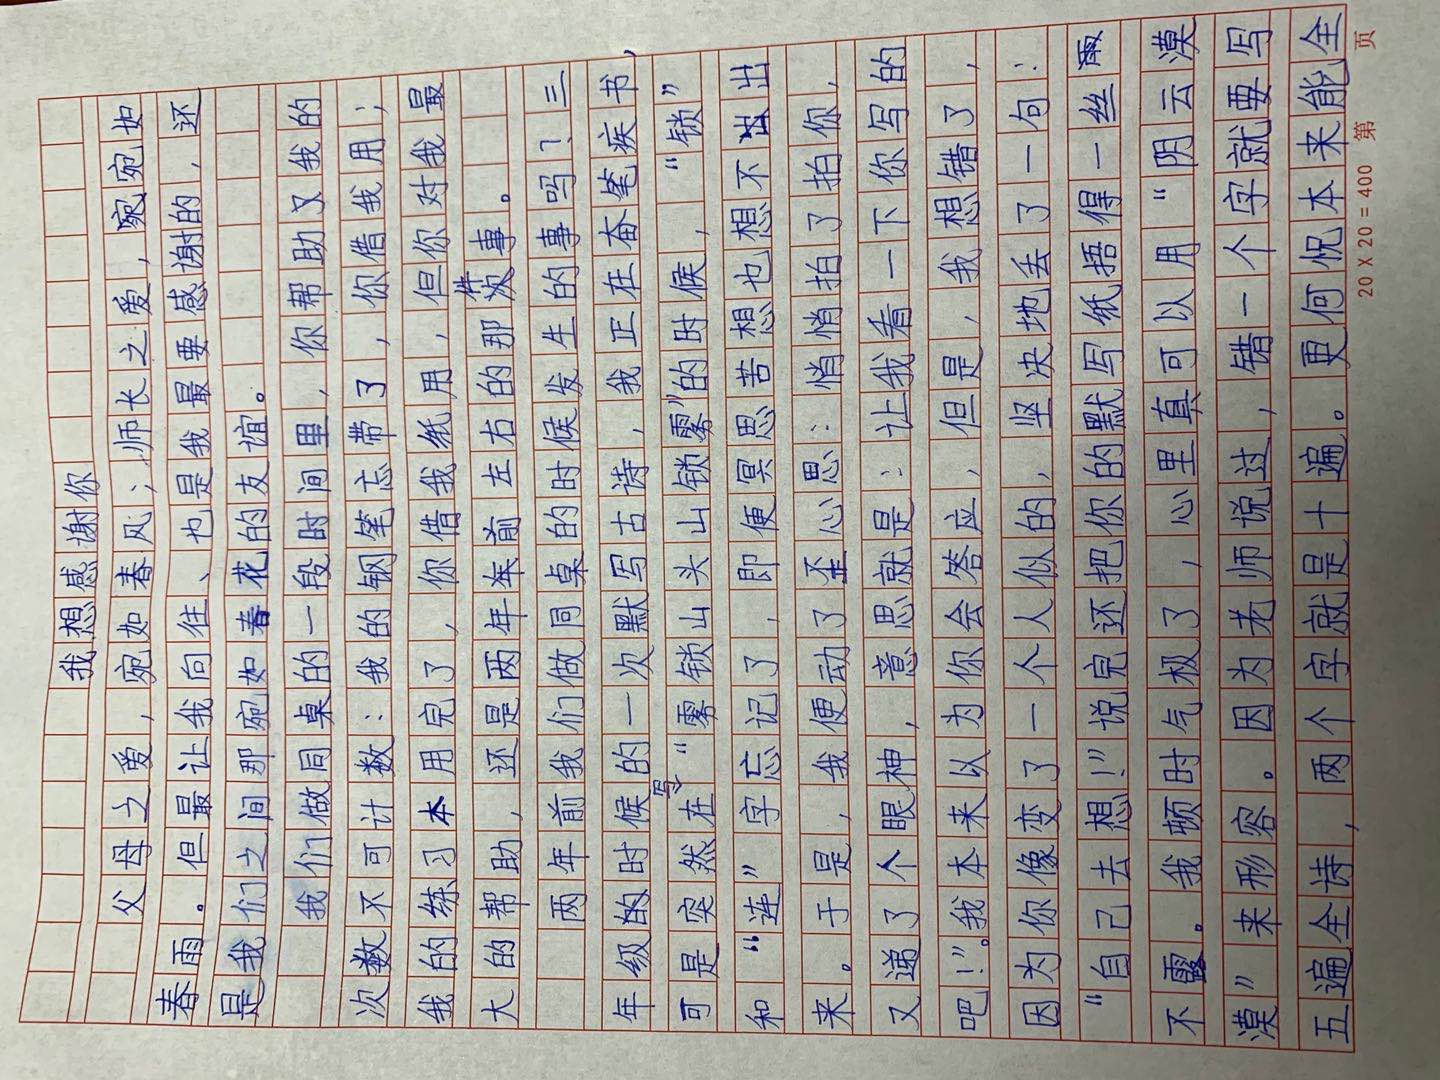 我想感谢你
父母之爱，宛如春风；师长之爱，宛宛如
春雨。但最让我向往、也是我最要感谢的，还
是我们之间那宛如春花的友谊。
我们做同桌的一段时间里，你帮助了我的
次数不可计数：我的钢笔忘带了，你借我用；
我的练习本用完了，你借我纸用，但你对我最
大的帮助，还是两年年前左右的那件事。
两年前我们做同桌的时候发生的事吗？三
年级的时候的一次默写古诗，我正在奋笔疾书，
可是突然在写“雾锁山头山锁雾”的时候，“锁”
和“连”字忘记了，即便冥思苦想也想不出
来。于是，我便动了歪心思：悄悄拍了拍你，
又递了个眼神，意思就是：让我看一下你写的
吧！”。我本来以为你会答应，但是，我想错了，
因为你像变了一个人似的，坚决地丢了一句：
“自己去想！”说完还把你的默写纸捂得一丝
不露。我顿时气极了，心里真可以用“阴云漠
漠”来形容。因为老师说过，错一个字就要写
五遍全诗，两个字就是十遍。更何况本来能全
20×20=400 第 页